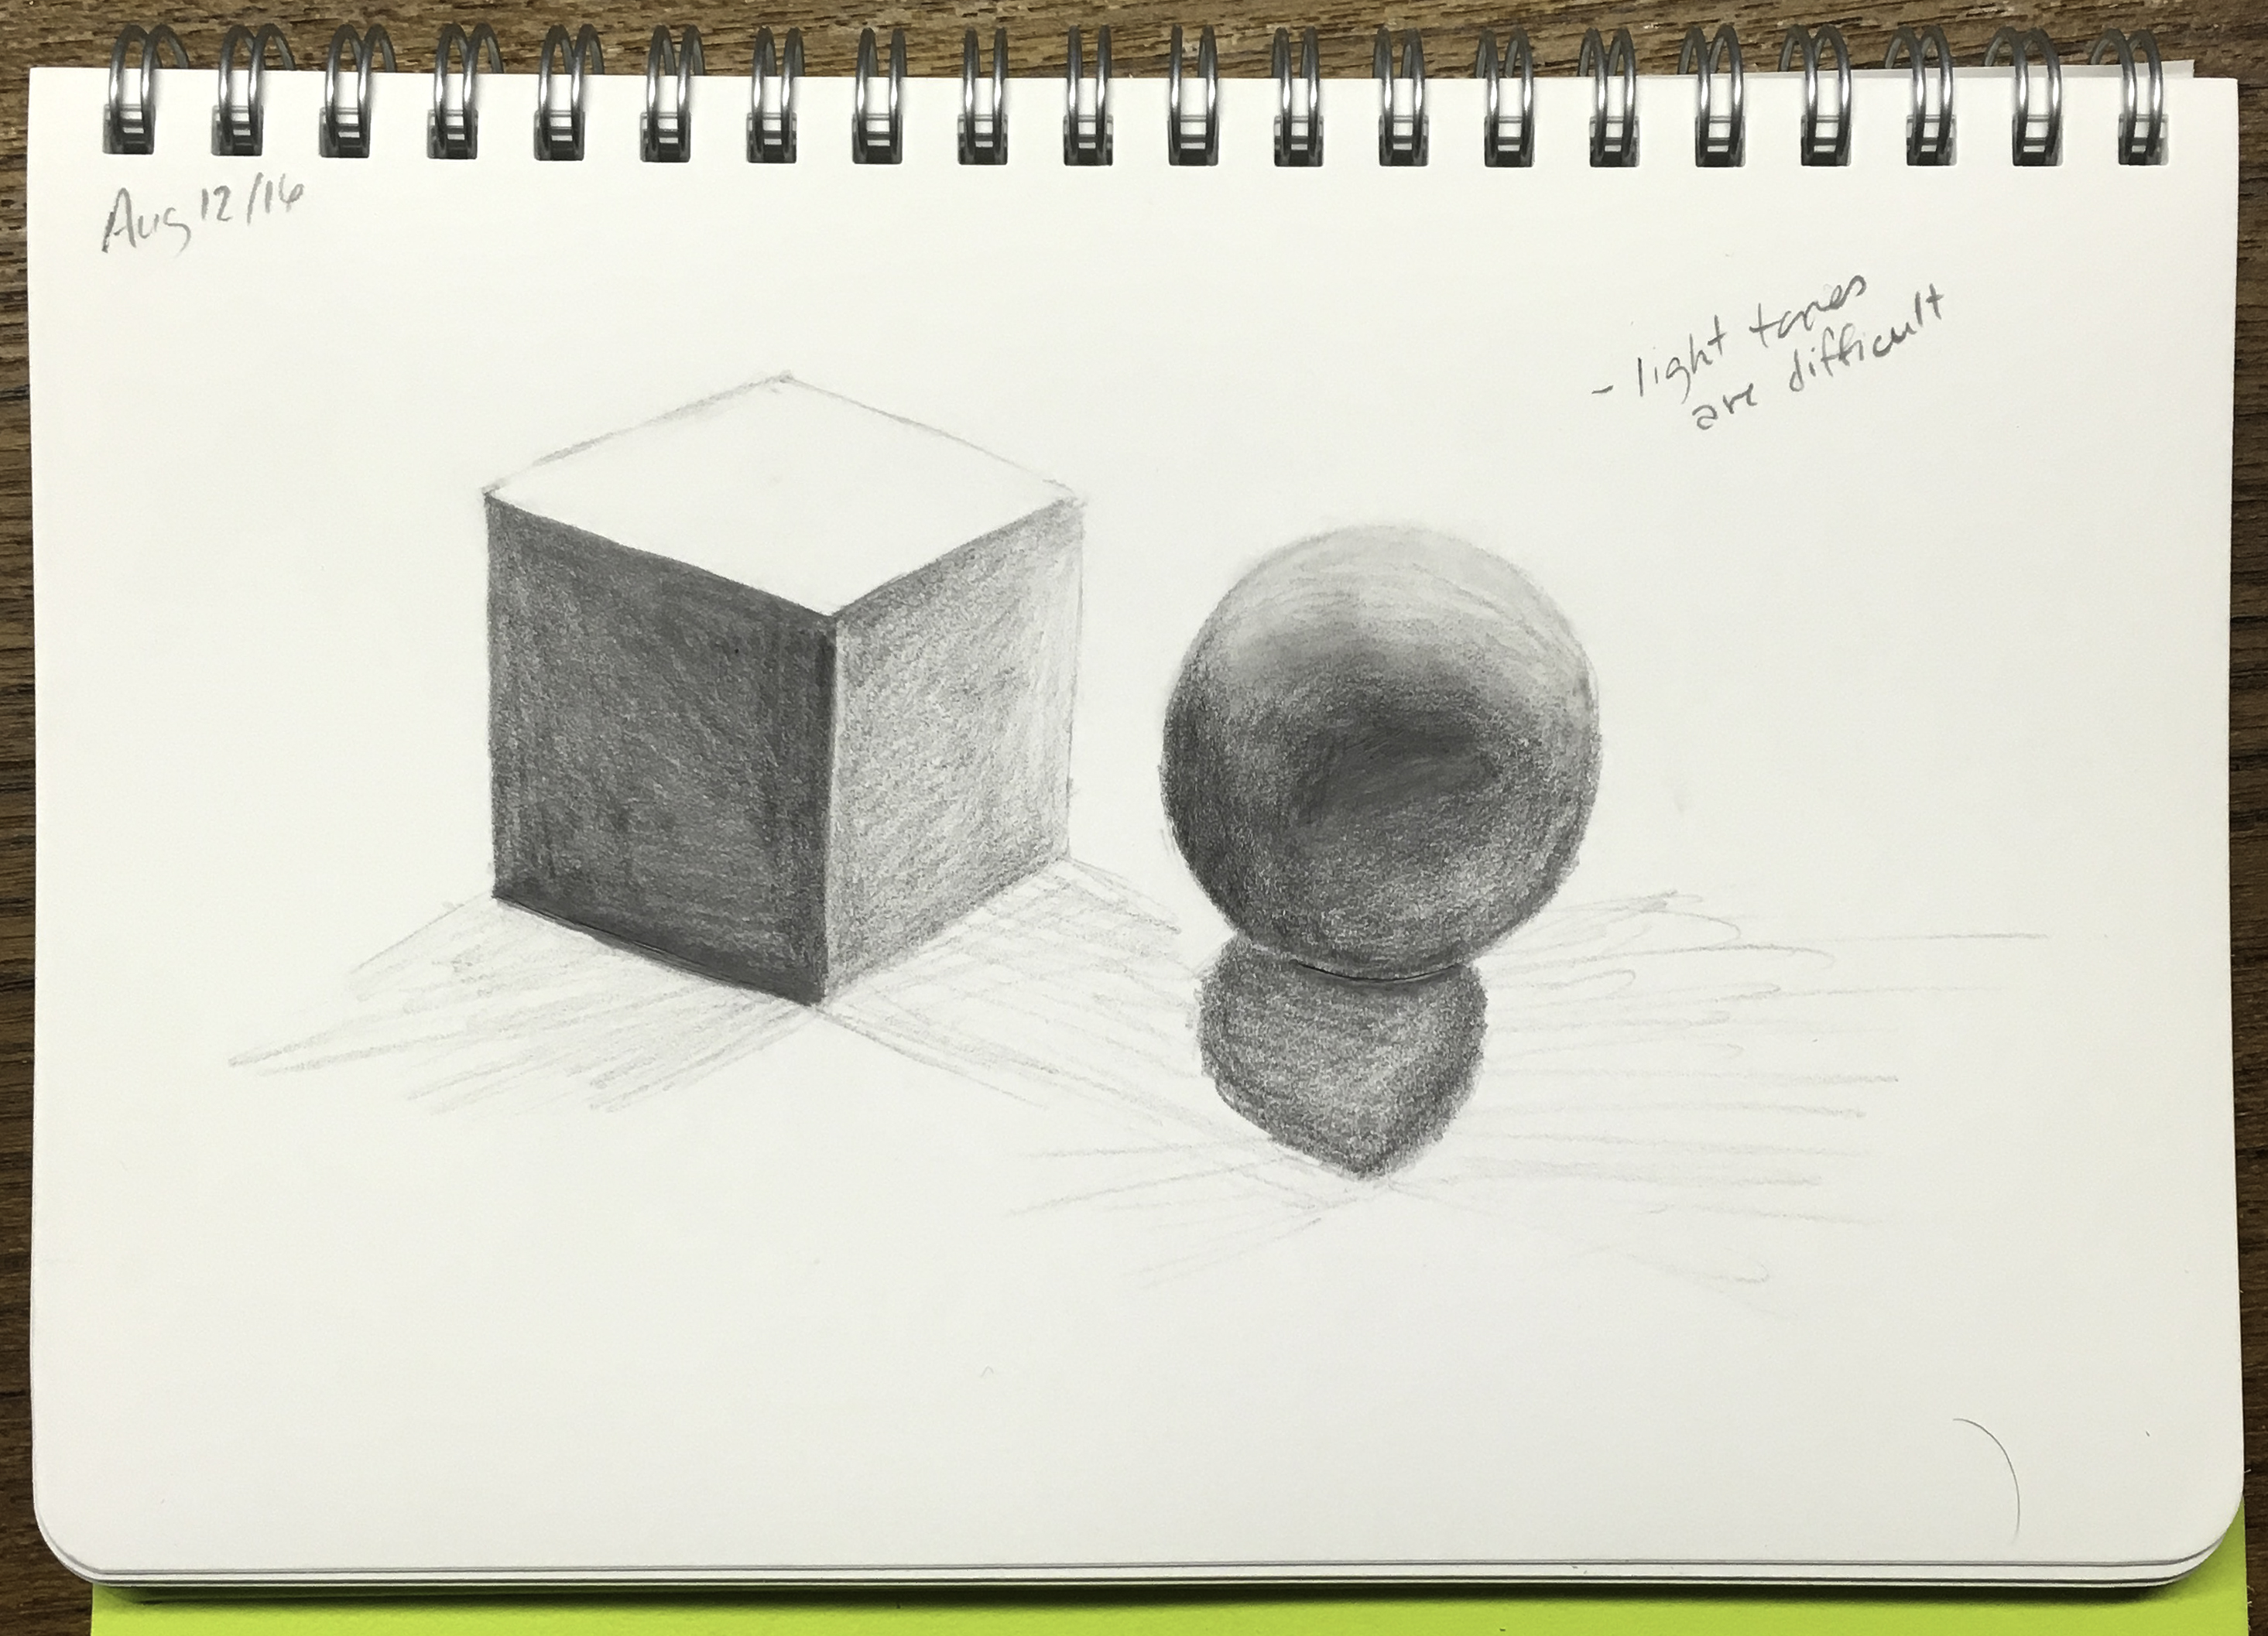 Aug 12/16
- light tones
are difficult